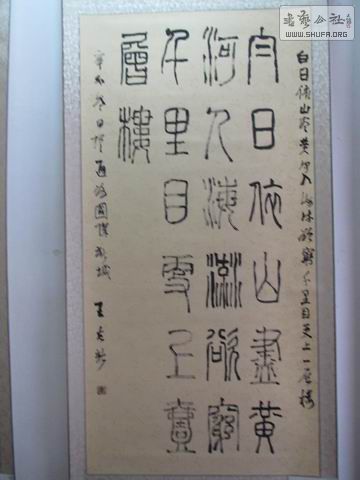 书艺公社
WWW.SHUFA.ORG
白日依山尽黄河入海流欲窮千里目更上一层楼
白日依山盡黃
河入海流欲窮
千里目更上壹
層樓
冬日